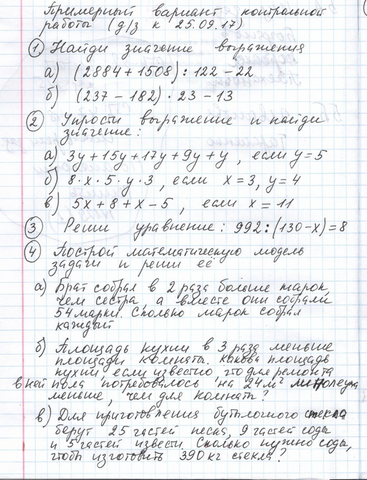 Примерный вариант контрольной
работы (д/з к 25.09.17)
① Найди значение выражения
а) (2884+1508):122-22
б) (237-182)·23-13
② Упрости выражение и найди
значение:
а) 3y+15y+17y+9y+y, если y=5
б) 8·x·5·y·3, если x=3, y=4
в) 5x+8+x-5, если x=11
③ Реши уравнение: 992:(130-x)=8
④ Построй математическую модель
задачи и реши её
а) Брат собрал в 2 раза больше марок,
чем сестра а вместе они собрали
54 марки. Сколько марок собрал
каждый
б) Площадь кухни в 3 раза меньше
площади комнаты. Какова площадь
кухни если известно, что для ремонта
в ней пола потребовалось на 24 м² линолеума
меньше, чем для комнаты?
в) Для приготовления бутылочного стекла
берут 25 частей песка, 9 частей соды
и 5 частей извести. Сколько нужно соды,
чтобы изготовить 390 кг стекла?